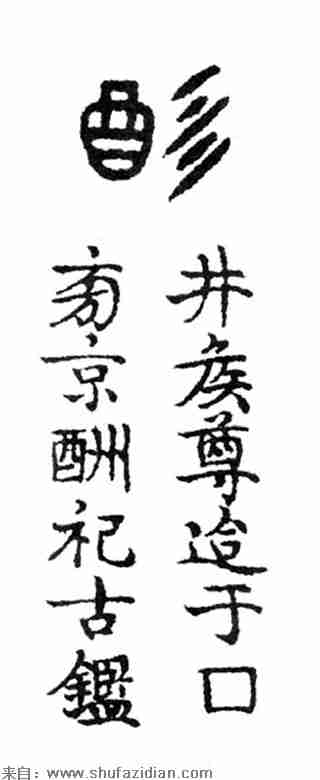 井矦尊迨于□
京酬祀古鑑
来自：www.shufazidian.com